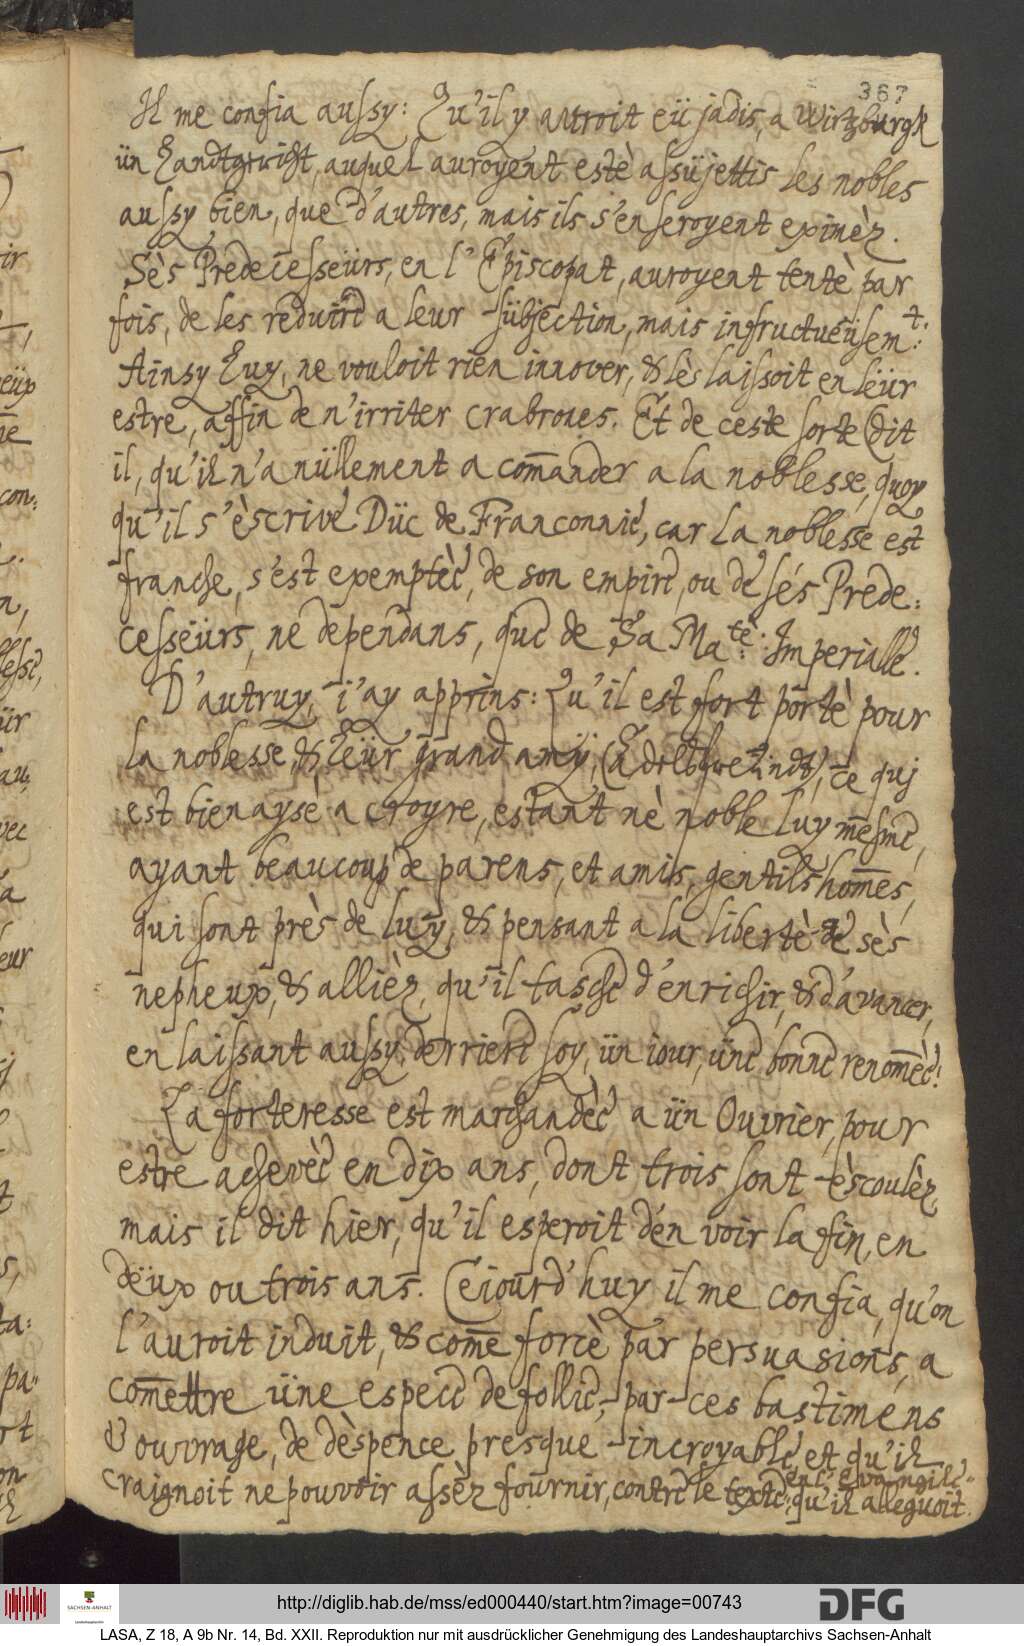 367
Il me confia aussy: Qu'il y auroit eü jadis, a Wirtzburgk
ün Landtgericht, auquel auroyent estè assüjettis les nobles
aussy bien, que d'autres, mais ils s'en seroyent eximèz.
Sès Predecesseürs, en l'Episcopat, auroyent tentè par
fois, de les reduire a leur sübjection, mais infructueüsem.t:
Ainsy Luy, ne vouloit rien innover, & les laissoit en leür
estre, affin de n'irriter crabrones. Et de ceste sorte (dit
il, qu'il n'a nüllement a com̄ander a la noblesse, quoy
qu'il s'èscrive Düc de Franconnie, car la noblesse est
franche, s'est exemptèe, de son empire, ou de sés Prede:
cesseürs, ne dependans, que de Sa Ma.tè: Imperialle.
D'autruy, i'ay apprins: Qu'il est fort portè pour
la noblesse, & leür grand amÿ, (Adelßgesindt), ce quj
est bien aysè a croyre, estant nè noble luy mesme,
ayant beaucoup de parens, et amis, gentils'hom̄es,
qui sont près de luy, & pensant a la libertè de sès
nepheux, & allièz, qu'il tasche d'enrichir, & d'avancer,
en laissant aussy, derriere soy, ün iour, üne bonne renom̄èe!
La forteresse est marchandèe a ün Ouvrier, pour
estre achevèe en dix ans, dont trois sont èscoulèz
mais il dit hier, qu'il esperoit d'en voir la fin, en
deüx ou trois ans. Ceiourd'huy il me confia, qu'on
l'auroit induit, & com̄e forcè par persuasions, a
com̄ettre üne espece de follie, par ces bastimens
d'ouvrage, de dèspence presque incroyable, et qu'il
craignoit ne pouvoir assèz fournir, contre le texte en l'Evangile qu'il alleguoit.
http://diglib.hab.de/mss/ed000440/start.htm?image=00743
SACHSEN-ANHALT
DFG
LASA, Z 18, A 9b Nr. 14, Bd. XXII. Reproduktion nur mit ausdrücklicher Genehmigung des Landeshauptarchivs Sachsen-Anhalt